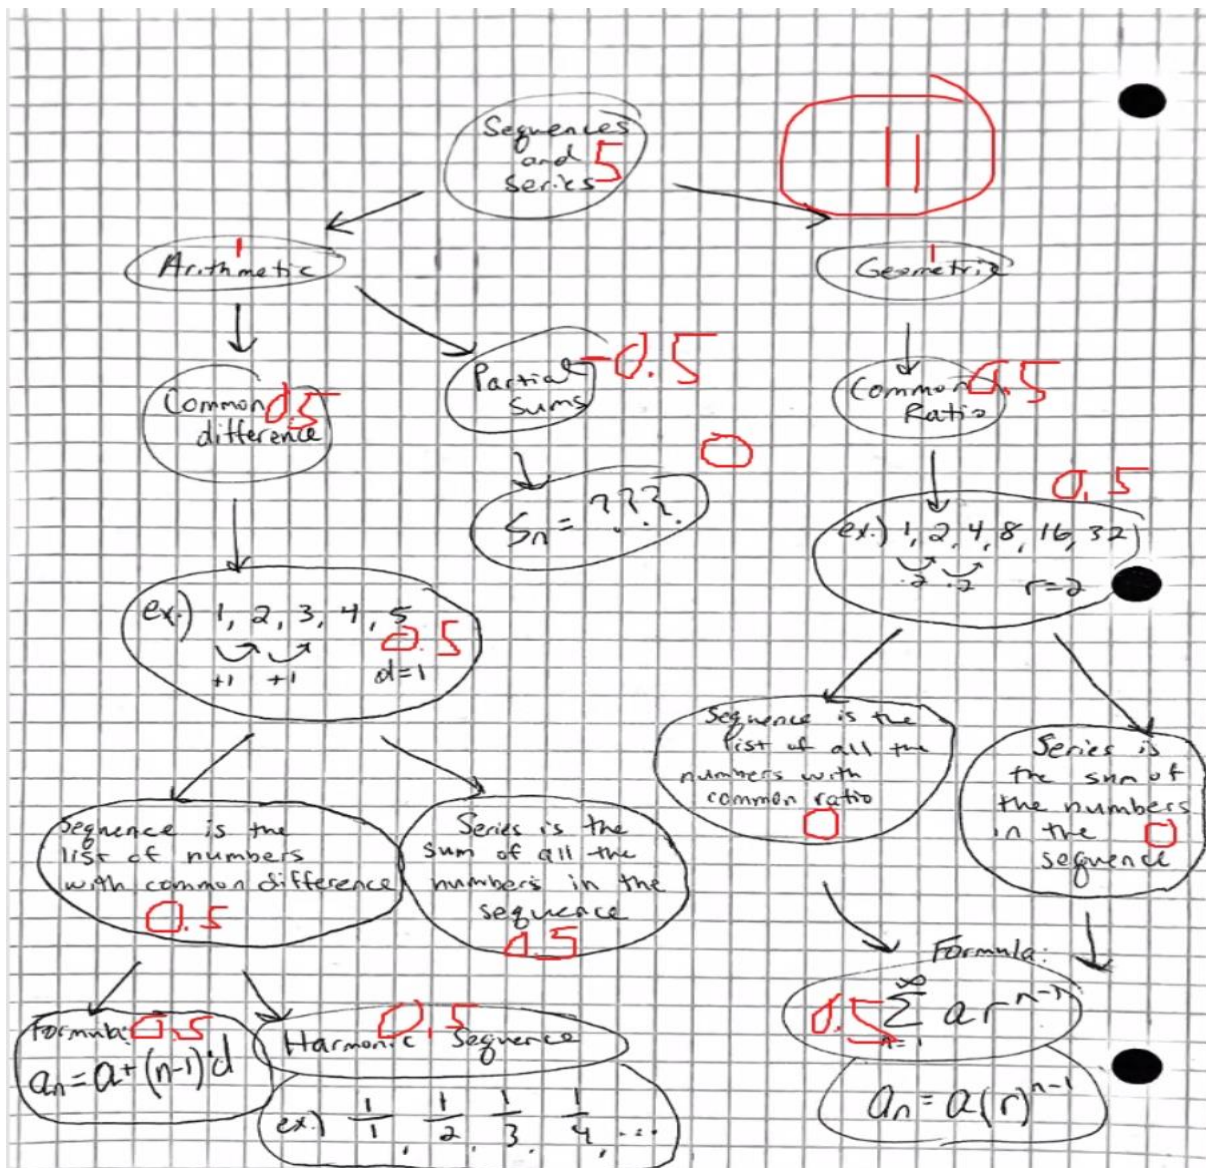 Sequences
and
series
5
11
1
Arithmetic
1
Geometric
Common
difference
0.5
Partial
Sums
-0.5
Common
Ratio
0.5
0
Sn = ???
0.5
ex.) 1, 2, 4, 8, 16, 32
·2 ·2 r=2
ex.) 1, 2, 3, 4, 5
0.5
+1 +1 d=1
Sequence is the
list of all the
numbers with
common ratio
0
Series is
the sum of
the numbers
in the
sequence
0
Sequence is the
list of numbers
with common difference
0.5
Series is the
sum of all the
numbers in the
sequence
0.5
Formula: 0.5
an = a + (n-1) d
0.5
Harmonic Sequence
ex.) 1/1, 1/2, 1/3, 1/4, ...
Formula:
0.5
∞
Σ ar^n-1
n=1
an = a(r)^n-1